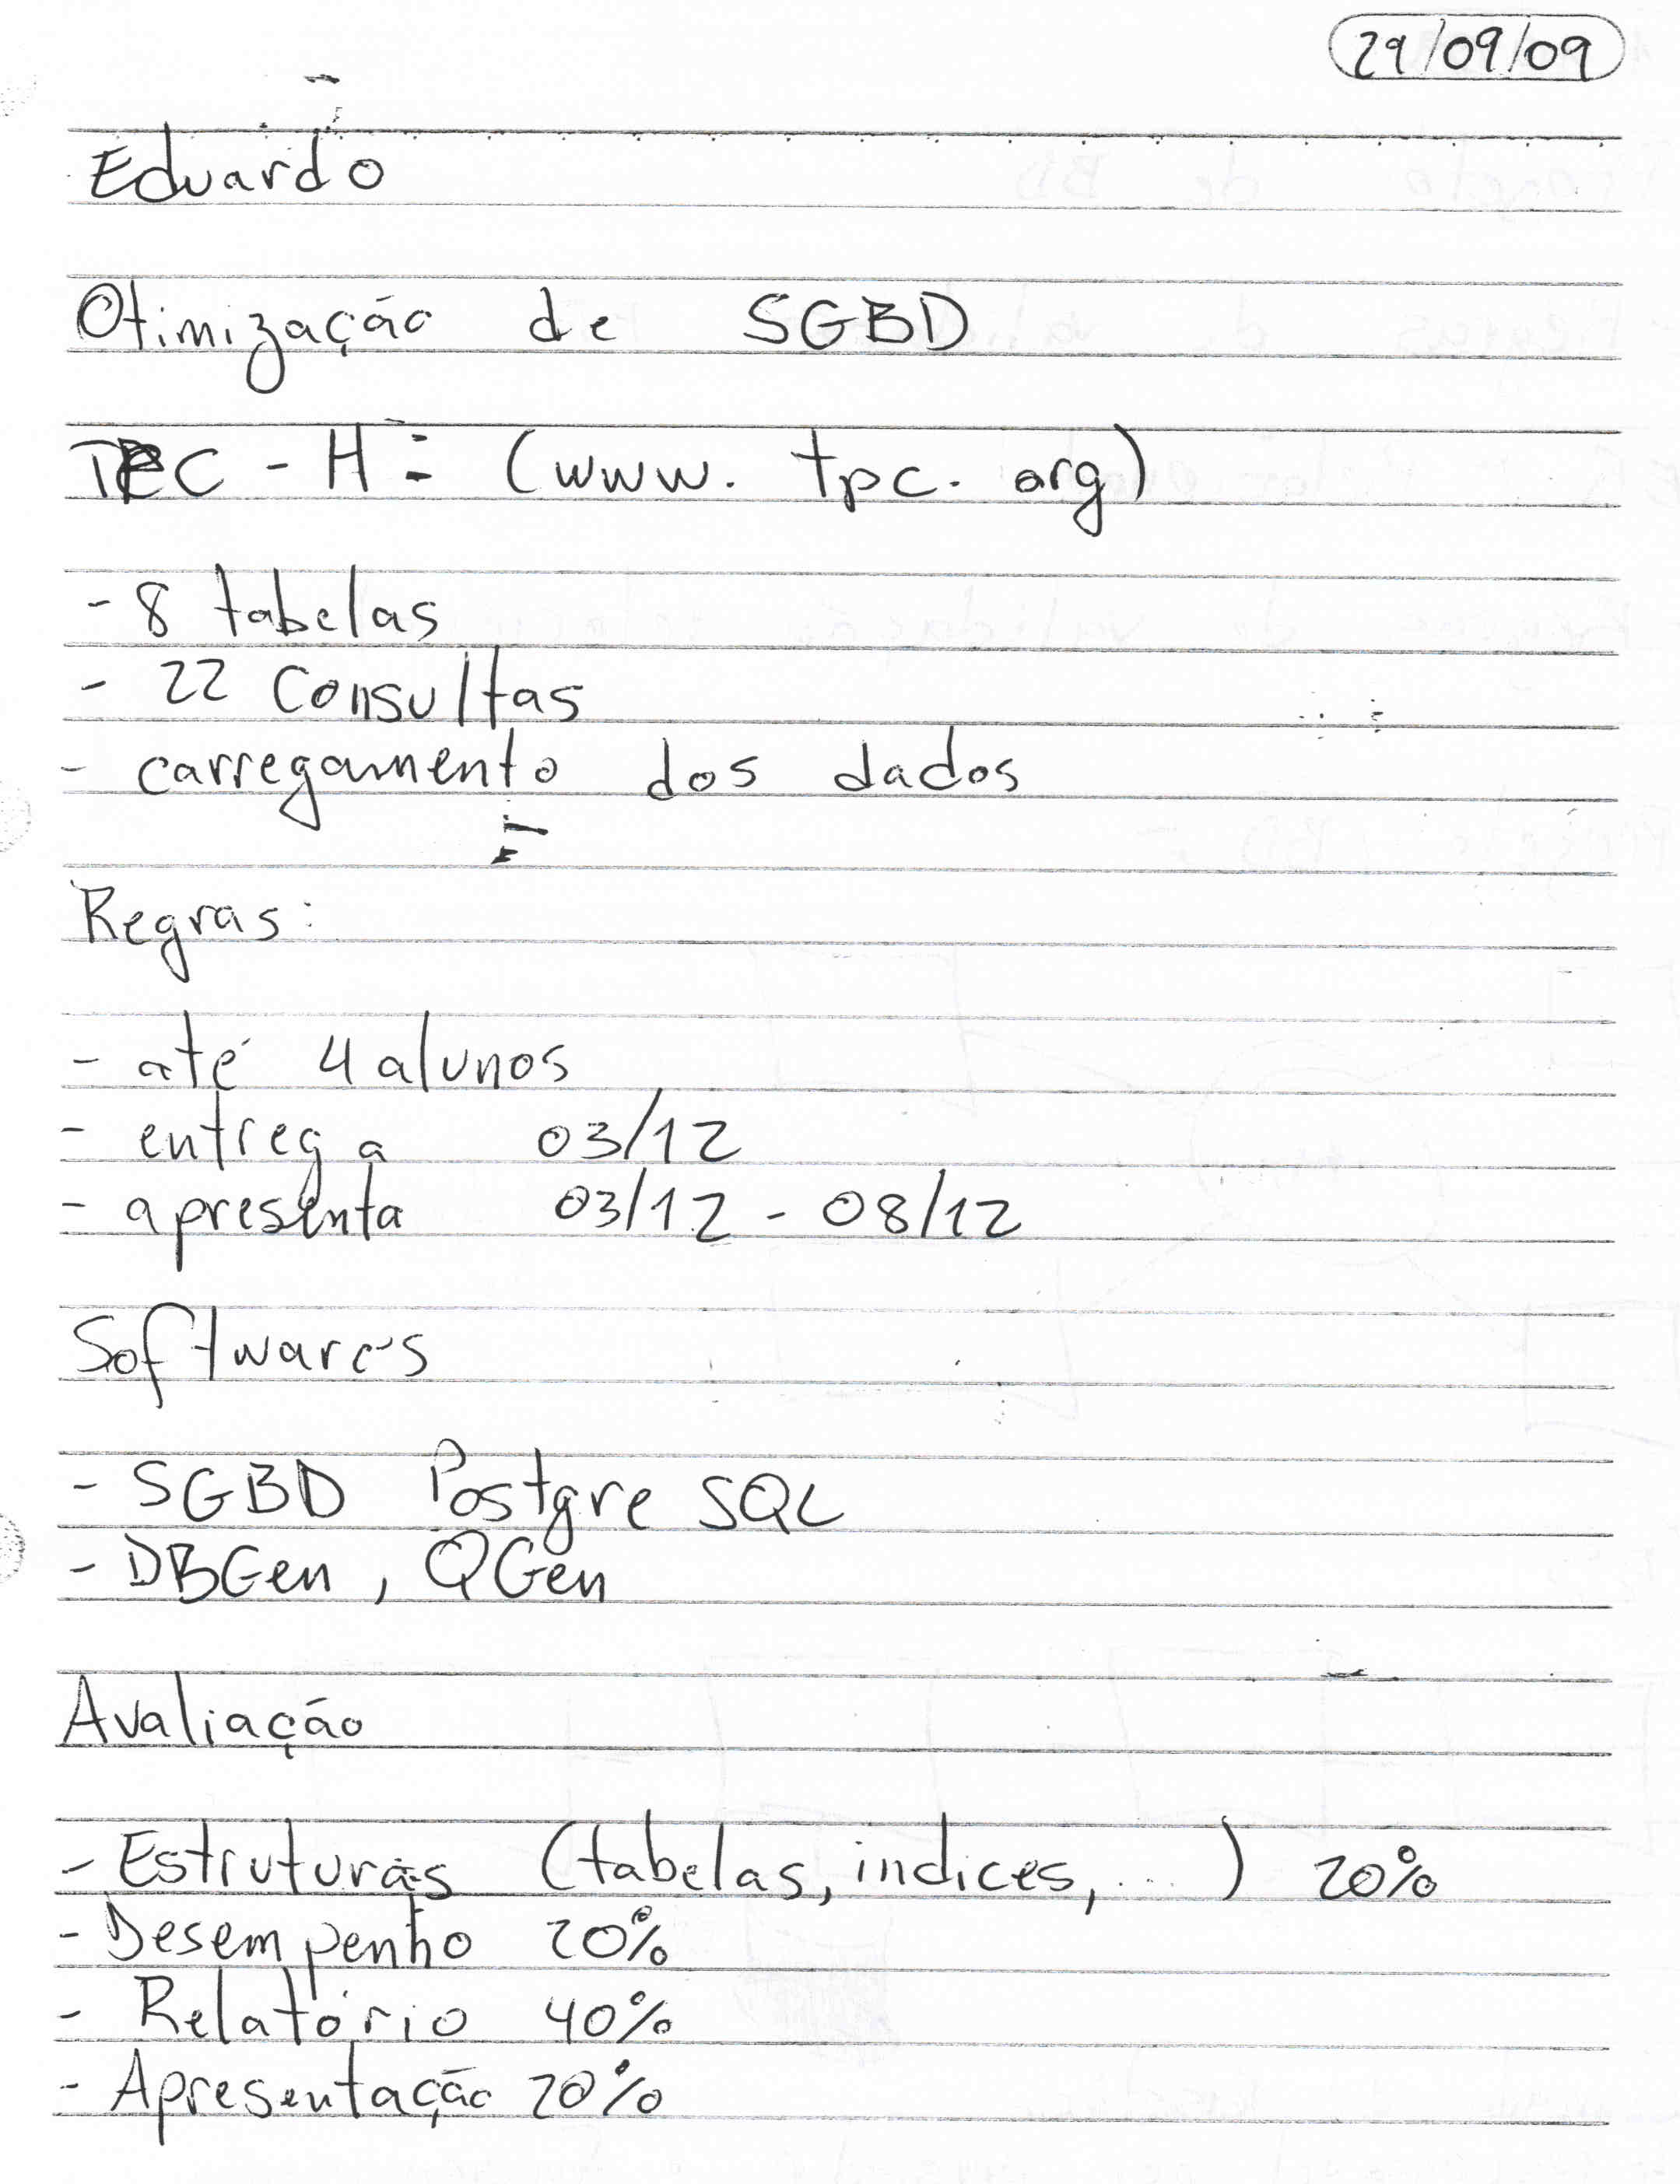 29/09/09
Eduardo
Otimização de SGBD
TPC - H: (www. tpc. org)
- 8 tabelas
- 22 Consultas
- carregamento dos dados
Regras:
- até 4 alunos
- entrega 03/12
- apresenta 03/12 - 08/12
Softwares
- SGBD PostgreSQL
- DBGen, QGen
Avaliação
- Estruturas (tabelas, indices, ... ) 20%
- Desempenho 20%
- Relatório 40%
- Apresentação 20%